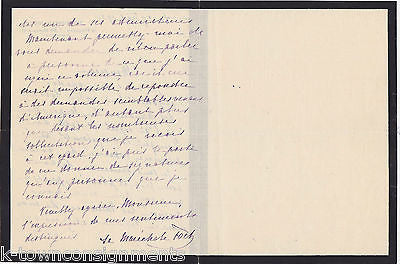 des un de ses admirateurs
Maintenant permettez-moi de
vous demander de
à personne de ce que j'ai
ce volume
serait impossible de répondre
à des demandes semblables venues
d'Amérique, d'autant plus
que devant les nombreuses
sollicitations que je reçois
à cet égard j'ai pris le parti
de ne donner de signatures
qu'aux personnes que je
connais
Veuillez agréer, Monsieur,
l'expression de mes sentiments
distingués
La Maréchale Foch
k-townconsignments